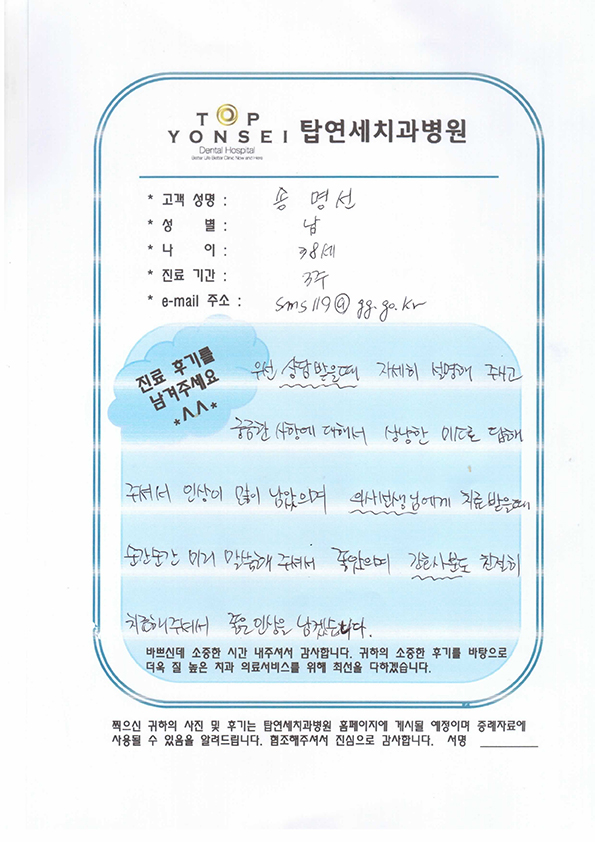 TOP
YONSEI 탑연세치과병원
Dental Hospital
Better Life Better Clinic Now and Here
* 고객 성명 : 송 명 선
* 성 별 : 남
* 나 이 : 38세
* 진료 기간 : 3주
* e-mail 주소 : sms119@gg.go.kr
진료 후기를
남겨주세요
*^^*
우선 상담받을때 자세히 설명해 주시고
궁금한 사항에 대해서 상냥한 미소로 답해
주셔서 인상이 많이 남았으며 의사선생님에게 치료받을때
순간순간 미리 말씀해 주셔서 좋았으며 간호사분도 친절히
치료해주셔서 좋은인상을 남겼습니다.
바쁘신데 소중한 시간 내주셔서 감사합니다. 귀하의 소중한 후기를 바탕으로
더욱 질 높은 치과 의료서비스를 위해 최선을 다하겠습니다.
찍으신 귀하의 사진 및 후기는 탑연세치과병원 홈페이지에 게시될 예정이며 증례자료에
사용될 수 있음을 알려드립니다. 협조해주셔서 진심으로 감사합니다. 서명